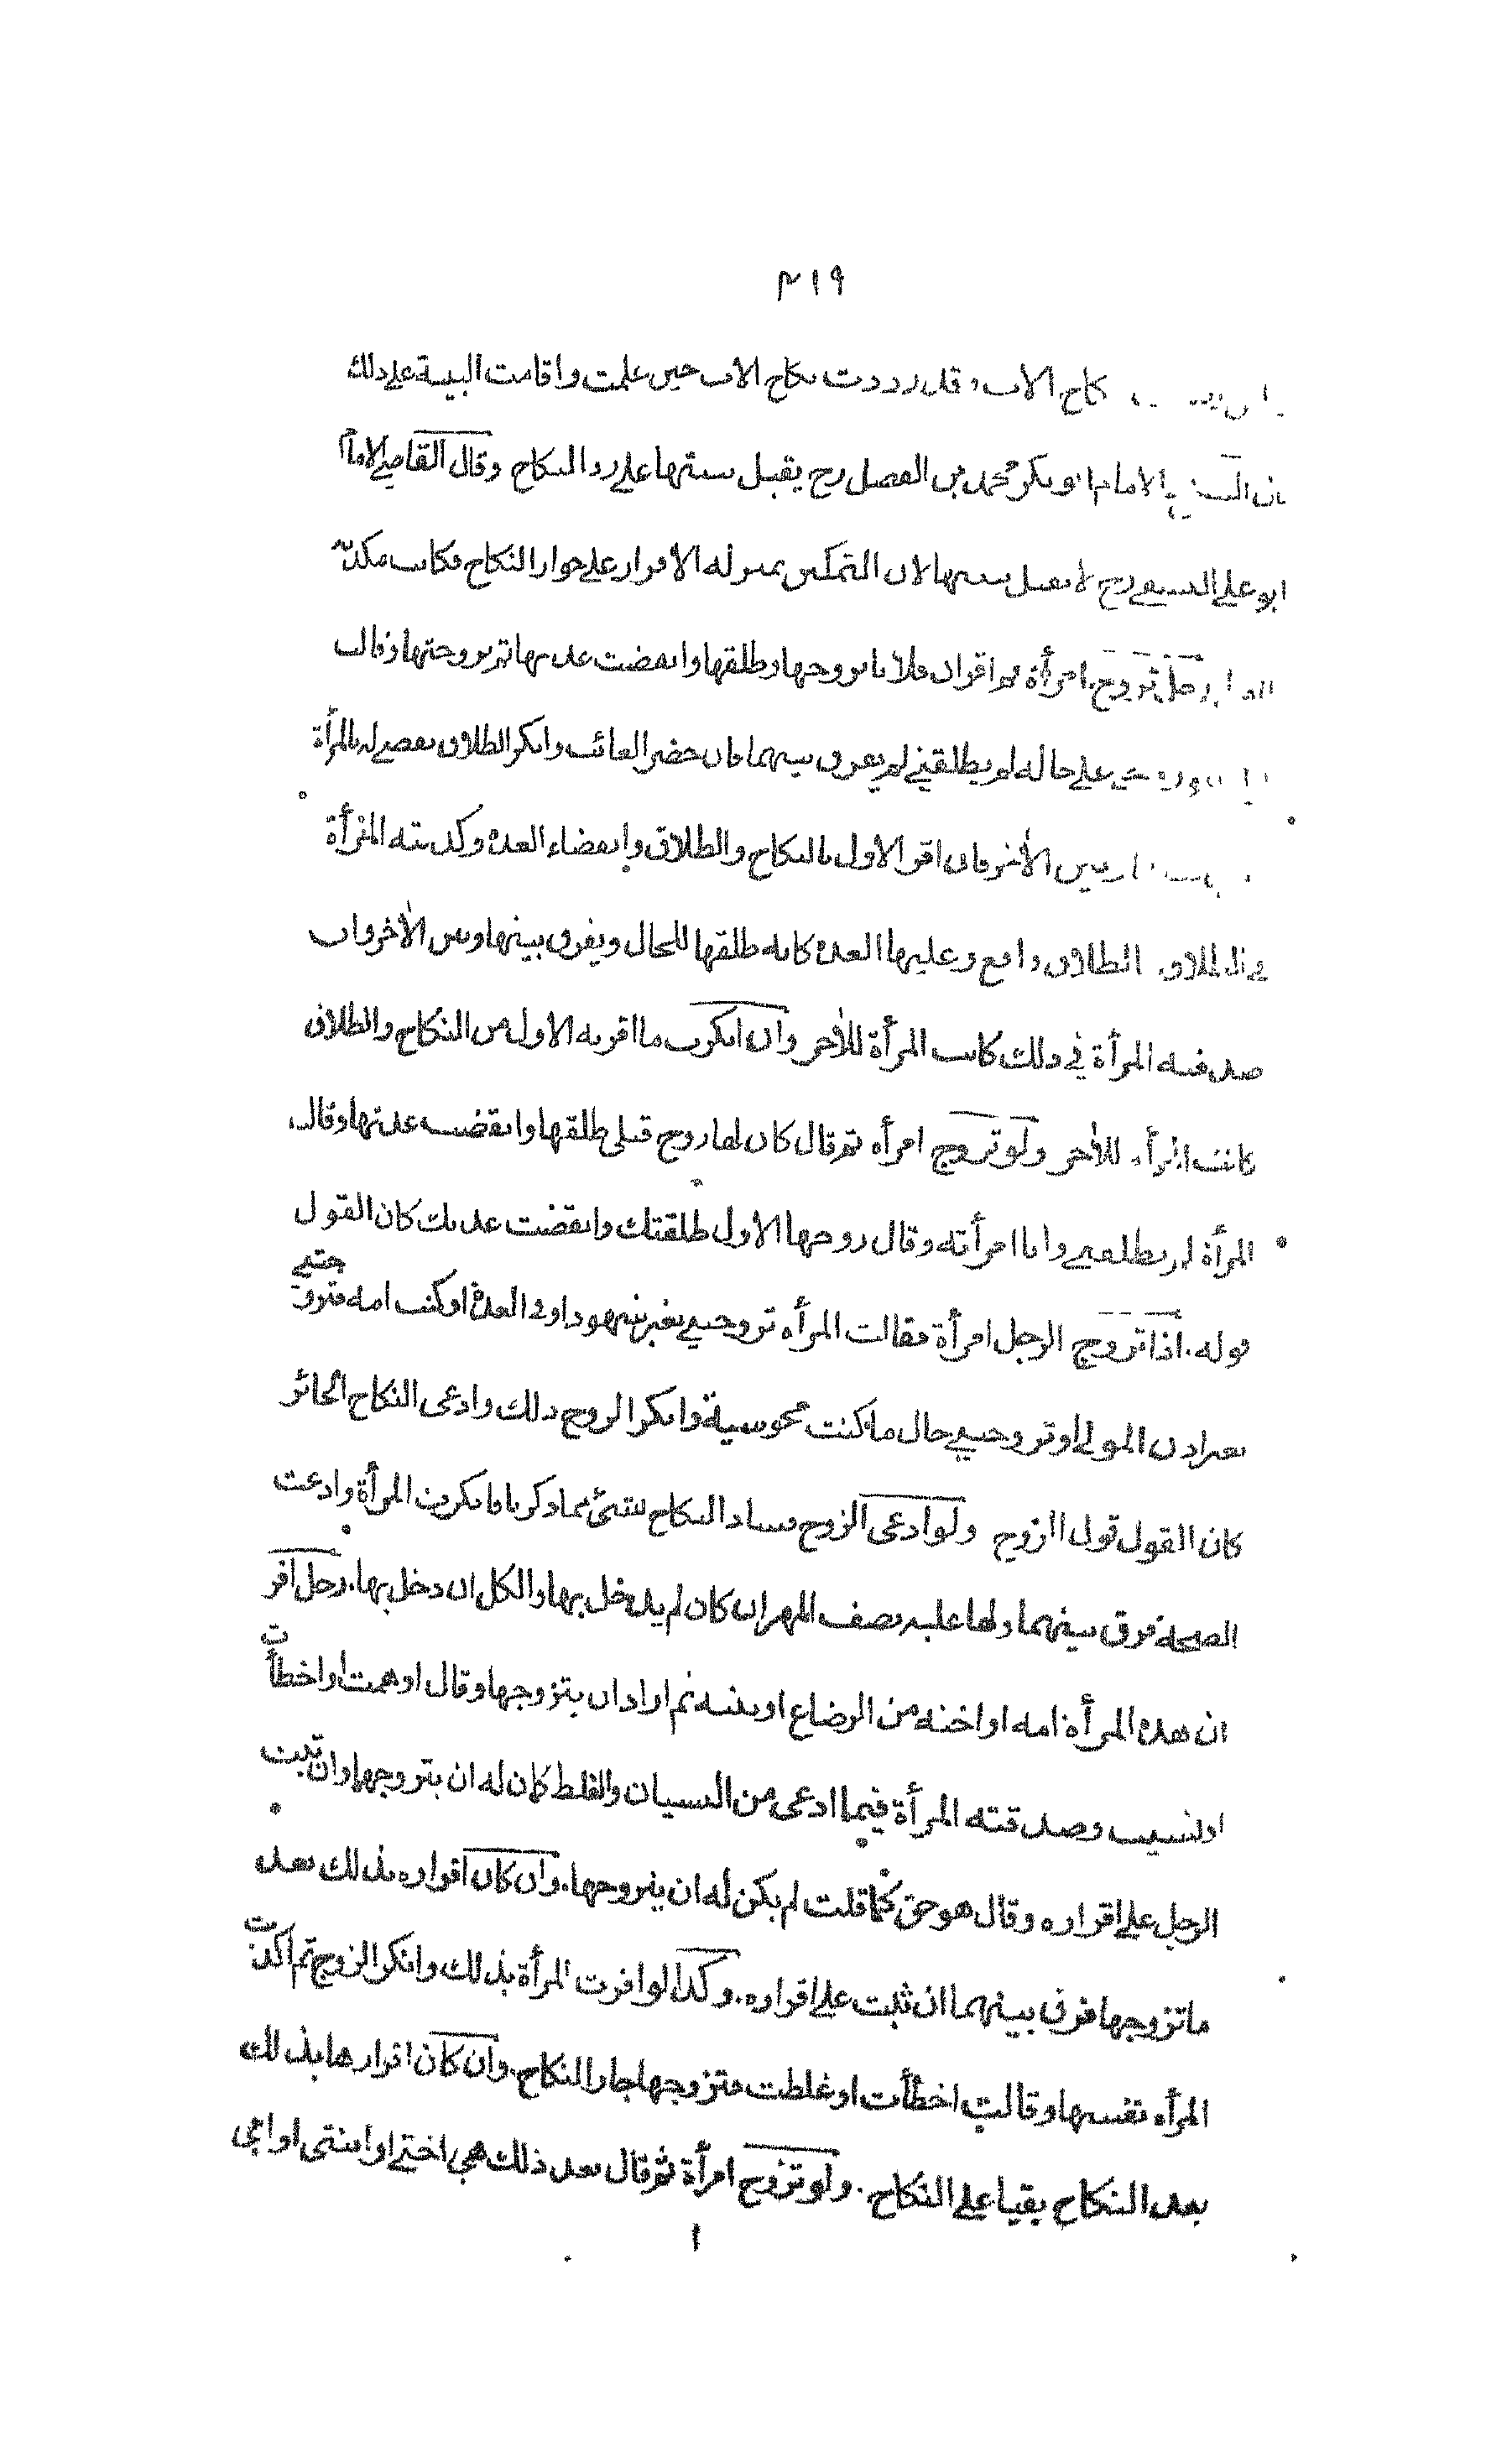 ٤١٩
نكاح الاب وقد رددت نكاح الاب حين علمت واقامت البينة على ذلك
الامام ابو بكر محمد بن الفضل رح يقبل بينتها على رد النكاح وقال القاضي الامام
ابو علي النسفي رح لا تقبل بينتها لان التمكين بمنزلة الاقرار على جواز النكاح فكانت مكذبة
رجل تزوج امرأة ثم اقر ان فلانا تزوجها وطلقها وانقضت عدتها ثم تزوجتها وقالت
على حاله لم يطلقني لم يفرق بينهما فان حضر الغائب وانكر الطلاق يقضى له بالمرأة
وبين الآخر فان اقر الاول بالنكاح والطلاق وانقضاء العدة وكذبته المرأة
في الطلاق الطلاق واقع وعليها العدة كانه طلقها للحال ويفرق بينها وبين الآخر وان
صدقته المرأة في ذلك كانت المرأة للآخر وان انكرت ما اقر به الاول من النكاح والطلاق
كانت المرأة للآخر ولو تزوج امرأة ثم قال كان لها زوج قبلى طلقها وانقضت عدتها وقالت
المرأة لم يطلقني وانا امرأته وقال زوجها الاول طلقتك وانقضت عدتك كان القول
قوله. اذا تزوج الرجل امرأة فقالت المرأة تزوجتني بغير شهود او في العدة او كنت امة فتزوجتني
بغير اذن المولى او تزوجتني حال ما كنت مجوسية وانكر الزوج ذلك وادعى النكاح الجائز
كان القول قول الزوج ولو ادعى الزوج فساد النكاح لشئ مما ذكرنا فانكرت المرأة وادعت
الصحة فرق بينهما ولها عليه نصف المهر ان كان لم يدخل بها والكل ان دخل بها. رجل اقر
ان هذه المرأة امه او اخته من الرضاع او بنته ثم اراد ان يتزوجها وقال اوهمت او اخطأت
او نسيت وصدقته المرأة فيما ادعى من النسيان والغلط كان له ان يتزوجها وان ثبت
الرجل على اقراره وقال هو حق كما قلت لم يكن له ان يتزوجها. وان كان اقراره بذلك بعد
ما تزوجها فرق بينهما ان ثبت على اقراره. وكذا لو اقرت المرأة بذلك وانكر الزوج ثم اكذبت
المرأة نفسها وقالت اخطأت او غلطت فتزوجها جاز النكاح. وان كان اقرارها بذلك
بعد النكاح بقيا على النكاح. ولو تزوج امرأة ثم قال بعد ذلك هي اختي او ابنتى او امي
ا